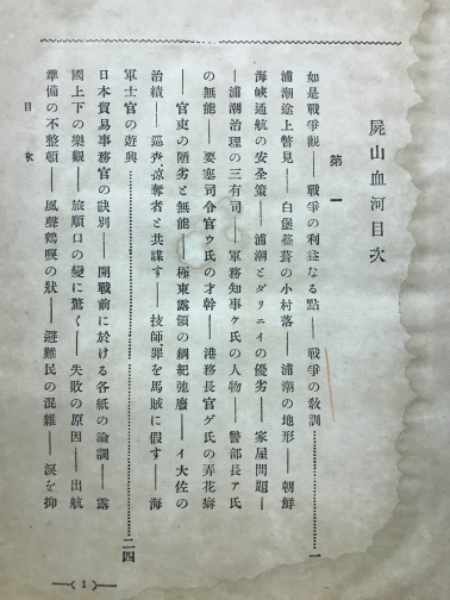 屍山血河目次
第一
如是戰爭觀――戰爭の利益なる點――戰爭の敎訓…………一
浦潮途上瞥見――白堡蔘蓊の小村落――浦潮の地形――朝鮮
海峽通航の安全策――浦潮とダリニイの優劣――家屋問題―
―浦潮治理の三有司――軍務知事ケ氏の人物――警部長ア氏
の無能――要塞司令官ウ氏の才幹――港務長官ゲ氏の弄花癖
――官吏の陋劣と無能――極東露領の綱紀弛廢――イ大佐の
治績――巡査掠奪者と共謀す――技師、罪を馬賊に假す――海
軍士官の遊興…………二四
日本貿易事務官の訣別――開戰前に於ける各紙の論調――露
國上下の樂觀――旅順口の變に驚く――失敗の原因――出航
準備の不整頓――風聲鶴唳の狀――避難民の混雜――淚を抑
目次
1